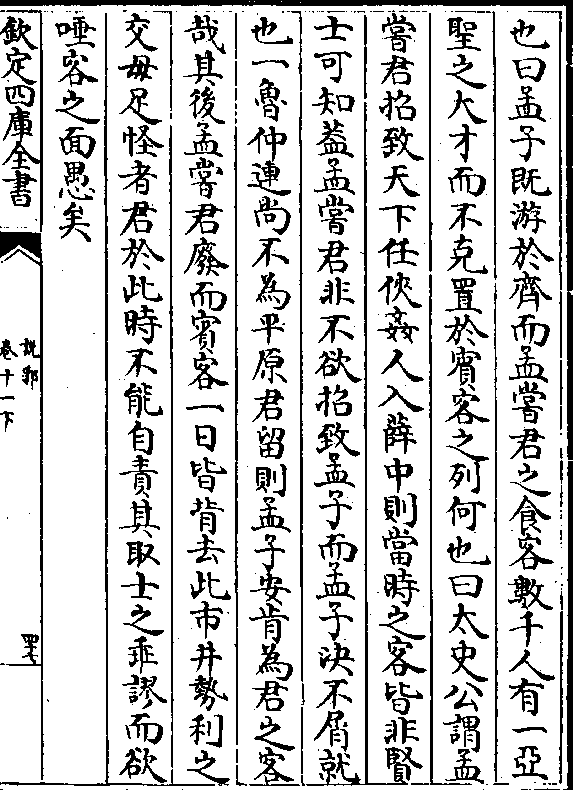 也曰孟子既游於齊而孟嘗君之食客數千人有一亞
聖之大才而不克置於賓客之列何也曰太史公謂孟
嘗君招致天下任俠姦人入薛中則當時之客皆非賢
士可知蓋孟嘗君非不欲招致孟子而孟子決不屑就
也一魯仲連尚不為平原君留則孟子安肯為君之客
哉其後孟嘗君廢而賓客一日皆背去此市井勢利之
交毋足怪者君於此時不能自責其取士之乖謬而欲
唾客之面愚矣
欽定四庫全書
說郛
卷十一下
四七